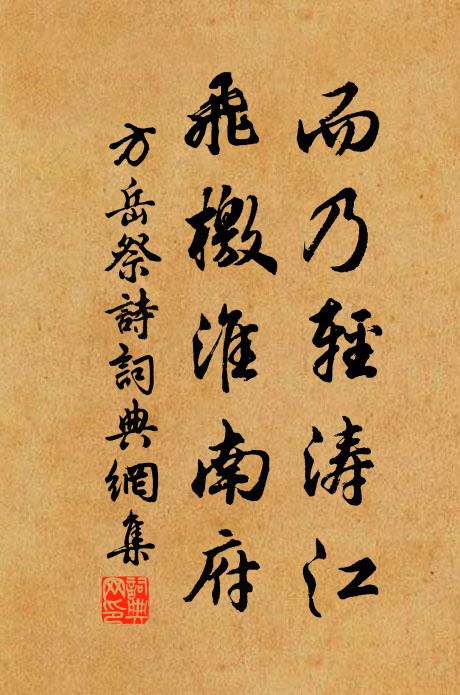 而乃輕涛江
飛檄淮南府
方岳祭詩詞典網集
詞典網印